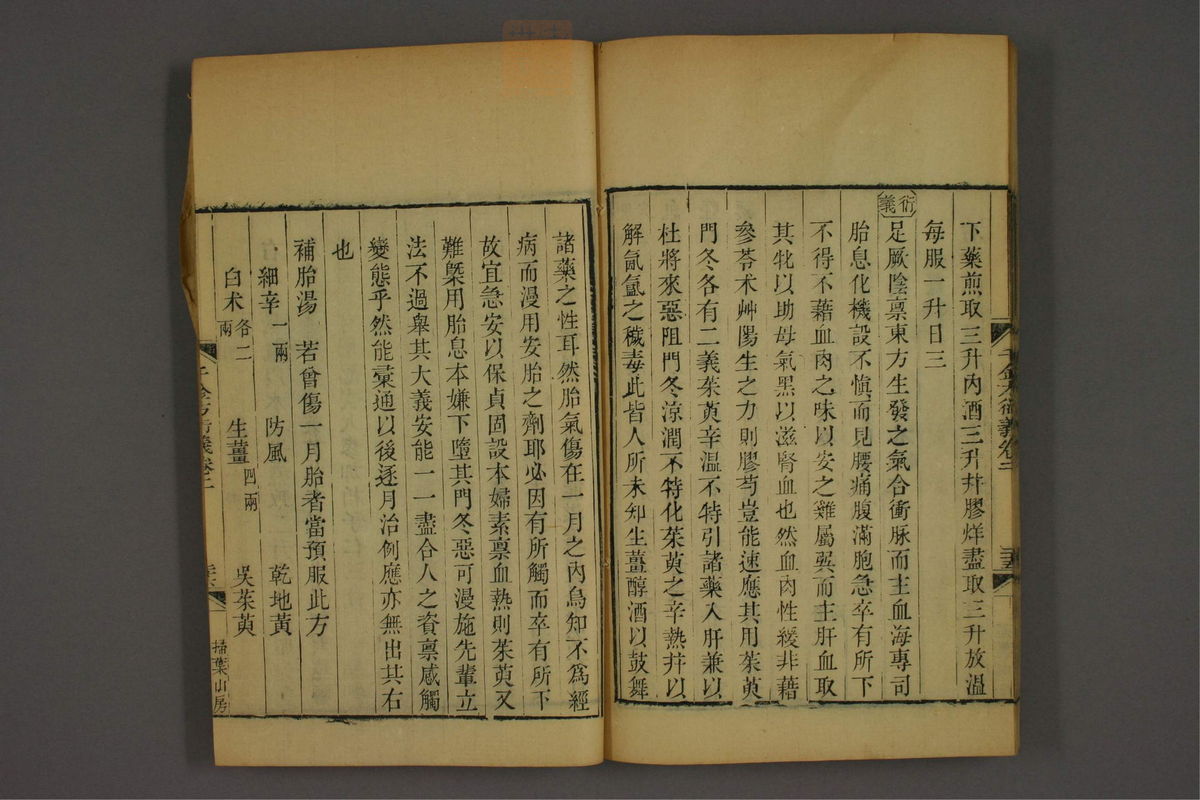 下藥煎取三升內酒三升幷膠烊盡取三升放溫
每服一升日三
衍義
足厥陰禀東方生發之氣合衝脉而主血海專司
胎息化機設不愼而見腰痛腹滿胞急卒有所下
不得不藉血肉之味以安之雞屬巽而主肝血取
其牝以助母氣黑以滋腎血也然血肉性緩非藉
參苓术艸陽生之力則膠芍豈能速應其用茱萸
門冬各有二義茱萸辛溫不特引諸藥入肝兼以
杜將來惡阻門冬涼潤不特化茱萸之辛熱幷以
解氤氳之穢毒此皆人所未知生薑醇酒以鼓舞
諸藥之性耳然胎氣傷在一月之內烏知不爲經
病而漫用安胎之劑耶必因有所觸而卒有所下
故宜急安以保貞固設本婦素禀血熱則茱萸又
難槩用胎息本嫌下墮其門冬惡可漫施先輩立
法不過舉其大義安能一一盡合人之資禀感觸
變態乎然能彙通以後逐月治例應亦無出其右
也
補胎湯 若曾傷一月胎者當預服此方
細辛一兩 防風 乾地黃
白术各二兩 生薑四兩 吳茱萸
千金方衍義卷二
掃葉山房